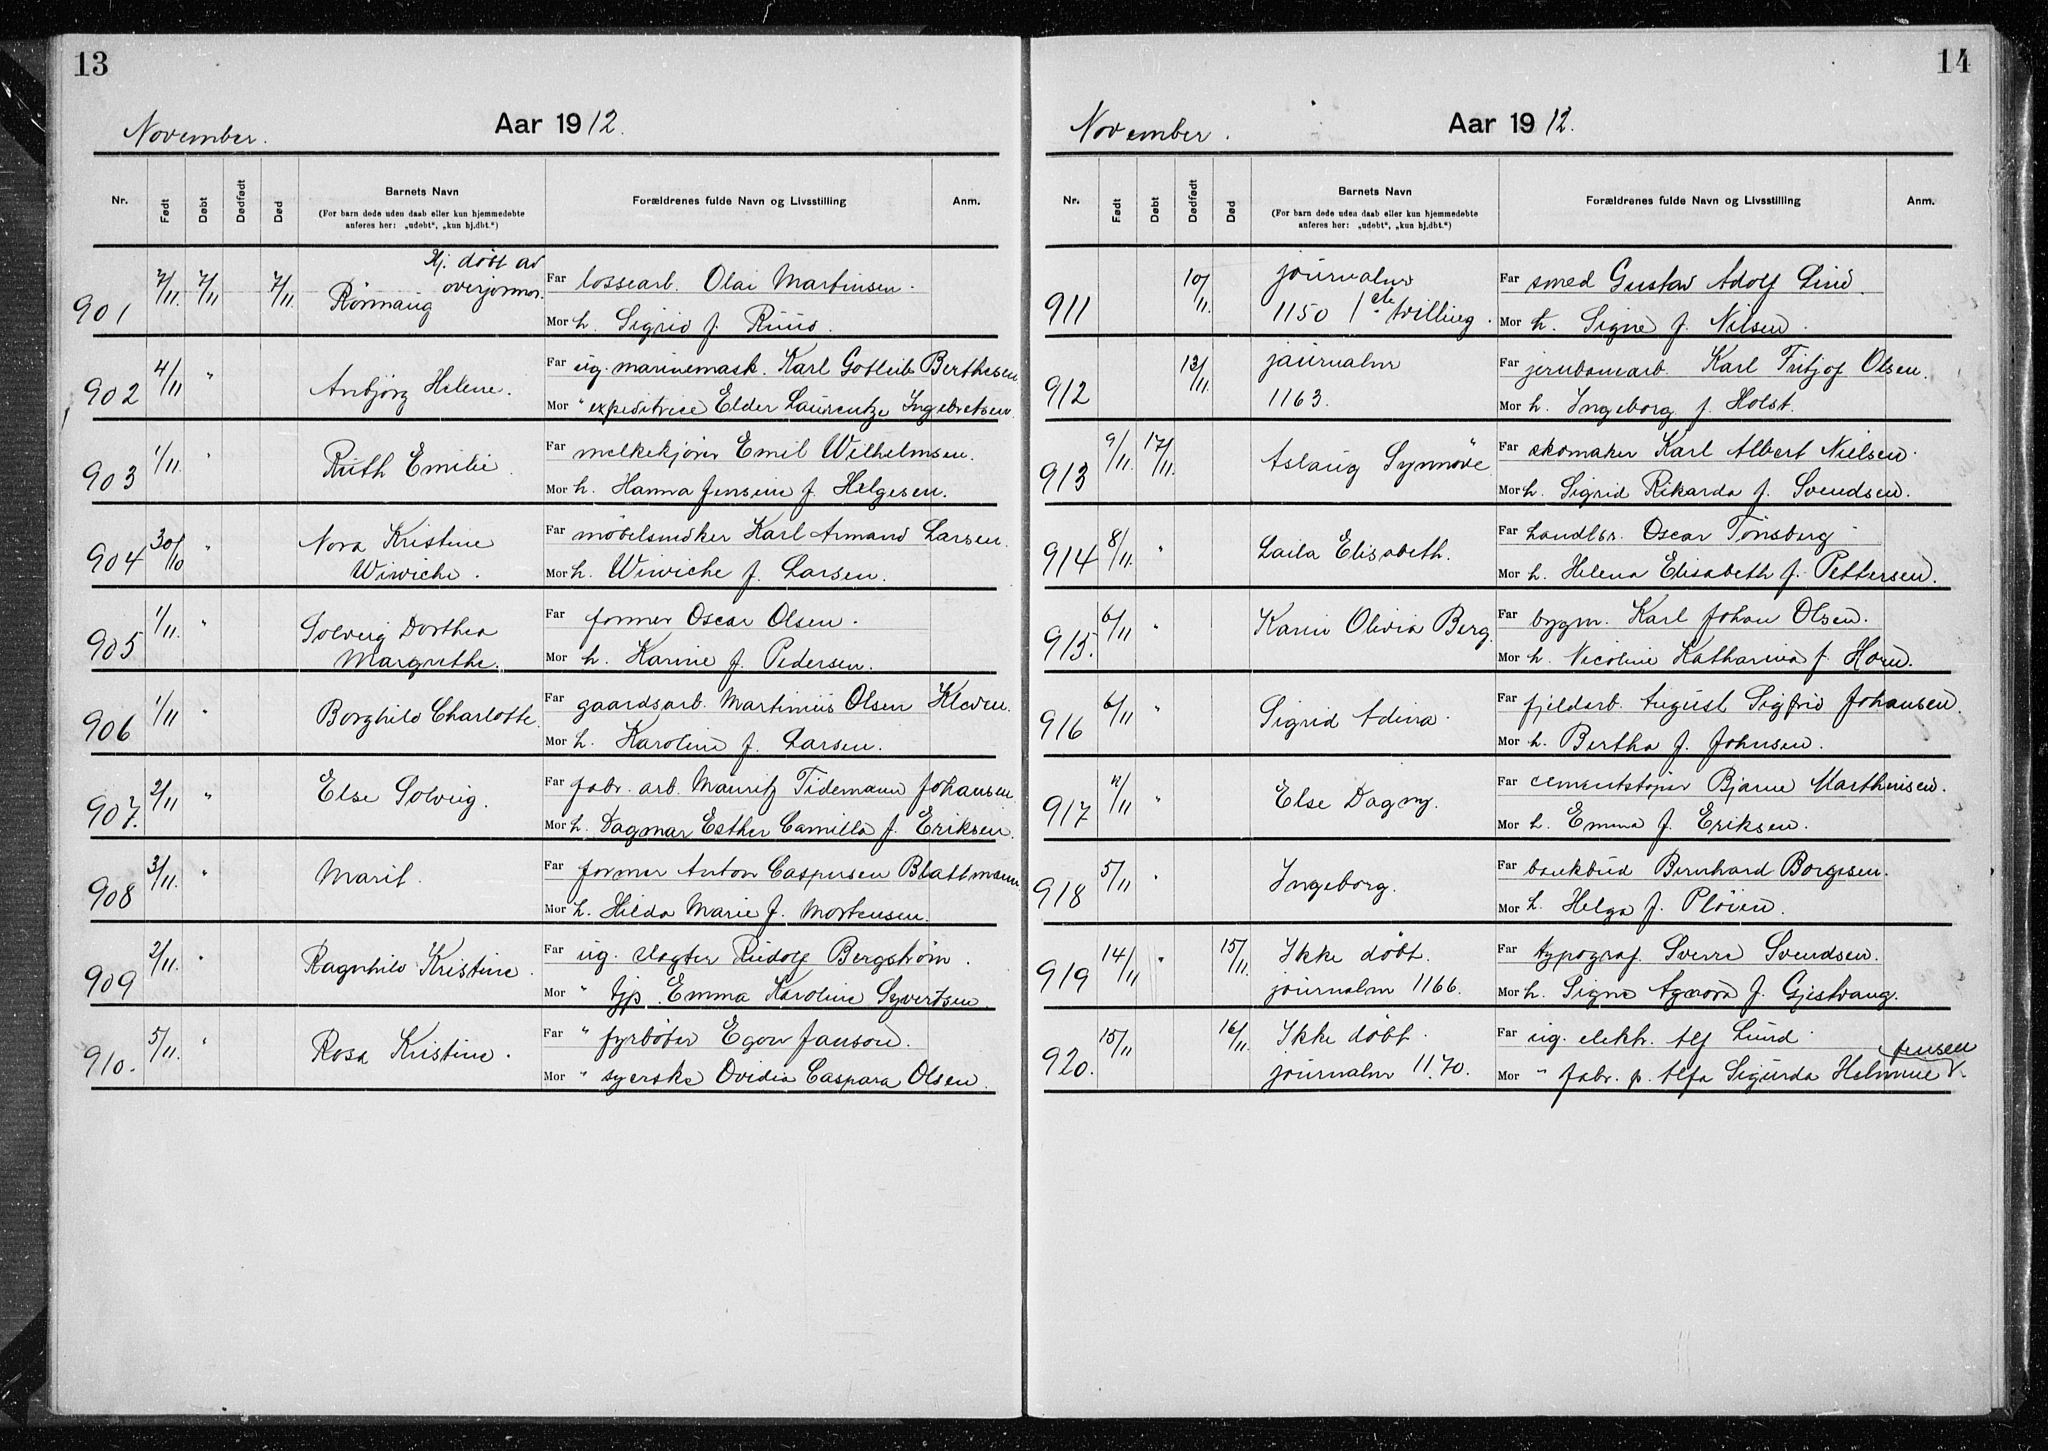 13
November.
Aar 1912.
Nr.
Født
Døbt
Dødfødt
Død
Barnets Navn
(For barn døde uden daab eller kun hjemmedøbte
anføres her: „udøbt“, „kun hj.dbt.“)
Forældrenes fulde Navn og Livsstilling
Anm.
901 7/11 7/11 7/11 Hj. døbt av overjormor. Rönnaug
Far lossearb. Olai Martinsen.
Mor h. Sigrid f. Ruud.
902 4/11 " Anbjörg Helene.
Far ug. marinemask. Karl Gotleib Berthesen
Mor " expeditrice Elder Laurentze Ingebretsen.
903 1/11 " Ruth Emilie.
Far melkekjörer Emil Wilhelmsen.
Mor h. Hanna Jensine f. Helgesen.
904 30/10 " Nora Kristine
Wiwiche.
Far möbelsnedker Karl Armand Larsen.
Mor h. Wiwiche f. Larsen.
905 1/11 " Solveig Dorthea
Margrethe.
Far former Oscar Olsen.
Mor h. Karine f. Pedersen.
906 1/11 " Borghild Charlotte.
Far gaardsarb. Martinius Olsen Kleven.
Mor h. Karoline f. Larsen.
907. 2/11 " Else Solveig.
Far fabr. arb. Mauritz Tidemann Johansen
Mor h. Dagmar Esther Camilla f. Eriksen.
908 3/11 " Marit.
Far former Anton Caspersen
Mor h. Hilda Marie f. Mortensen.
909 2/11 " Ragnhild Kristine.
Far ug. slagter Rudolf Bergström.
Mor " tjp. Emma Karoline Syvertsen
910. 5/11 " Rosa Kristine.
Far " fyrböter Egon Janson.
Mor " syerske Ovidia Caspara Olsen.
14
November.
Aar 1912.
Nr.
Født
Døbt
Dødfødt
Død
Barnets Navn
(For barn døde uden daab eller kun hjemmedøbte
anføres her: „udøbt“, „kun hj.dbt.“)
Forældrenes fulde Navn og Livsstilling
Anm.
911 10/11 journalnr
1150 1ste tvilling.
Far smed Gustav Adolf Lind.
Mor h. Signe f. Nilsen.
912 13/11 journalnr
1163.
Far jernbanearb. Karl Fritjof Olsen.
Mor h. Ingeborg f. Holst.
913 9/11 17/11 Aslaug Synnöve
Far skomaker Karl Albert Nielsen.
Mor h. Sigrid Rikarda f. Svendsen.
914 8/11 " Laila Elisabeth.
Far handlbr. Oscar Tönsberg
Mor h. Helena Elisabeth f. Pettersen.
915. 6/11 " Karin Olivia Berg.
Far bygm. Karl Johan Olsen.
Mor h. Nicoline Katharina f. Horn.
916 6/11 " Sigrid Adina.
Far fjeldarb. August Sigfrid Johansen.
Mor h. Bertha f. Johnsen.
917 "
Else Dagny.
Far cementstöper Bjarne Marthinsen.
Mor h. Emma f. Eriksen.
918 5/11 " Ingeborg.
Far bankbud Bernhard Borgersen.
Mor h. Helga f. Plöien.
919 14/11 " 15/11 Ikke döbt.
journalnr 1166.
Far typograf Sverre Svendsen.
Mor h. Signe f. Gjestvang.
920. 15/11 16/11 Ikke döbt.
journalnr 1170.
Far ug. elektr. Alf Lund.
Jensen
Mor " fabr. p. Alfa Sigurda Helmine